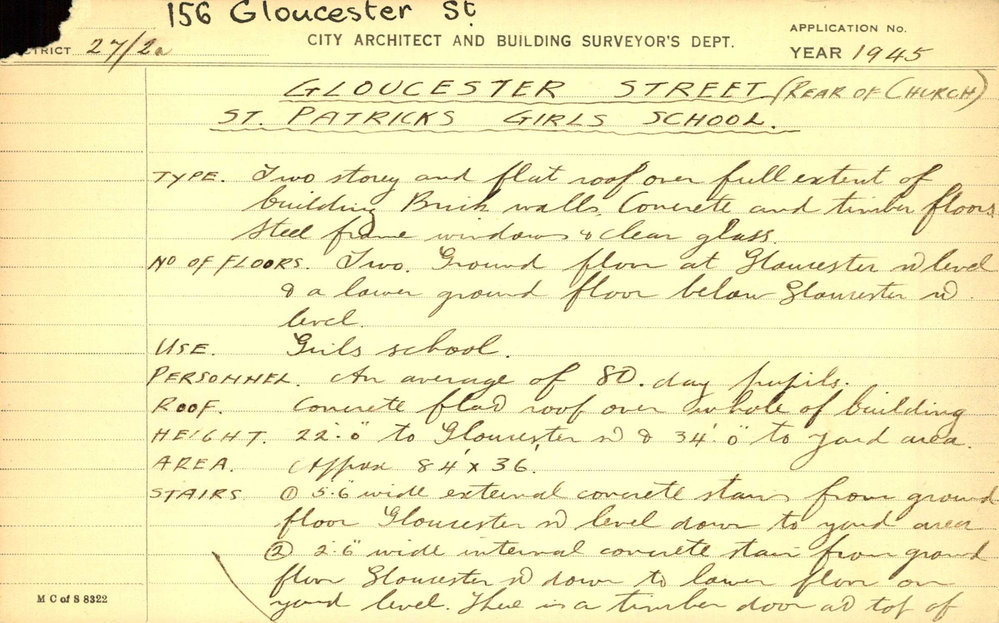 156 Gloucester St.
DISTRICT 27/2a
CITY ARCHITECT AND BUILDING SURVEYOR'S DEPT.
APPLICATION No.
YEAR 1945
GLOUCESTER STREET (REAR OF CHURCH)
ST. PATRICKS GIRLS SCHOOL.
TYPE. Two storey and flat roof over full extent of
building Brick walls. Concrete and timber floors.
Steel frame windows & clear glass.
NO OF FLOORS. Two. Ground floor at Gloucester st level
& a lower ground floor below Gloucester st
level.
USE. Girls school.
PERSONNEL. An average of 80. day pupils.
ROOF. Concrete flat roof over whole of building
HEIGHT. 22'.0" to Gloucester st & 34'.0" to yard area.
AREA. Approx 84' x 36'.
STAIRS ① 5'.6" wide external concrete stairs from ground
floor Gloucester st level down to yard area
② 2'.6" wide internal concrete stair from ground
floor Gloucester st down to lower floor on
yard level. There is a timber door at top of
M C of S 8322